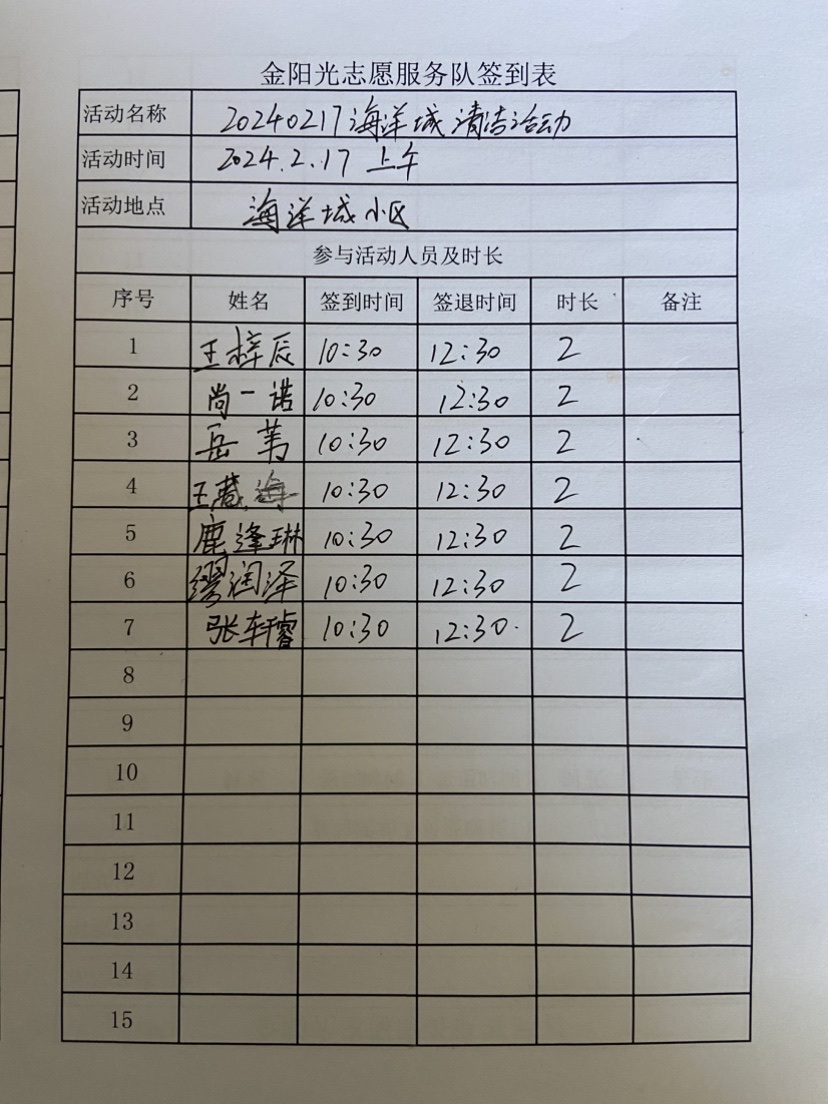 金阳光志愿服务队签到表
活动名称 20240217海洋城清洁活动
活动时间 2024.2.17 上午
活动地点 海洋城小区
参与活动人员及时长
序号 姓名 签到时间 签退时间 时长 备注
1 王梓辰 10:30 12:30 2
2 尚一诺 10:30 12:30 2
3 岳苇 10:30 12:30 2
4 王 10:30 12:30 2
5 鹿逢琳 10:30 12:30 2
6 缪润泽 10:30 12:30 2
7 张轩睿 10:30 12:30 2
8
9
10
11
12
13
14
15